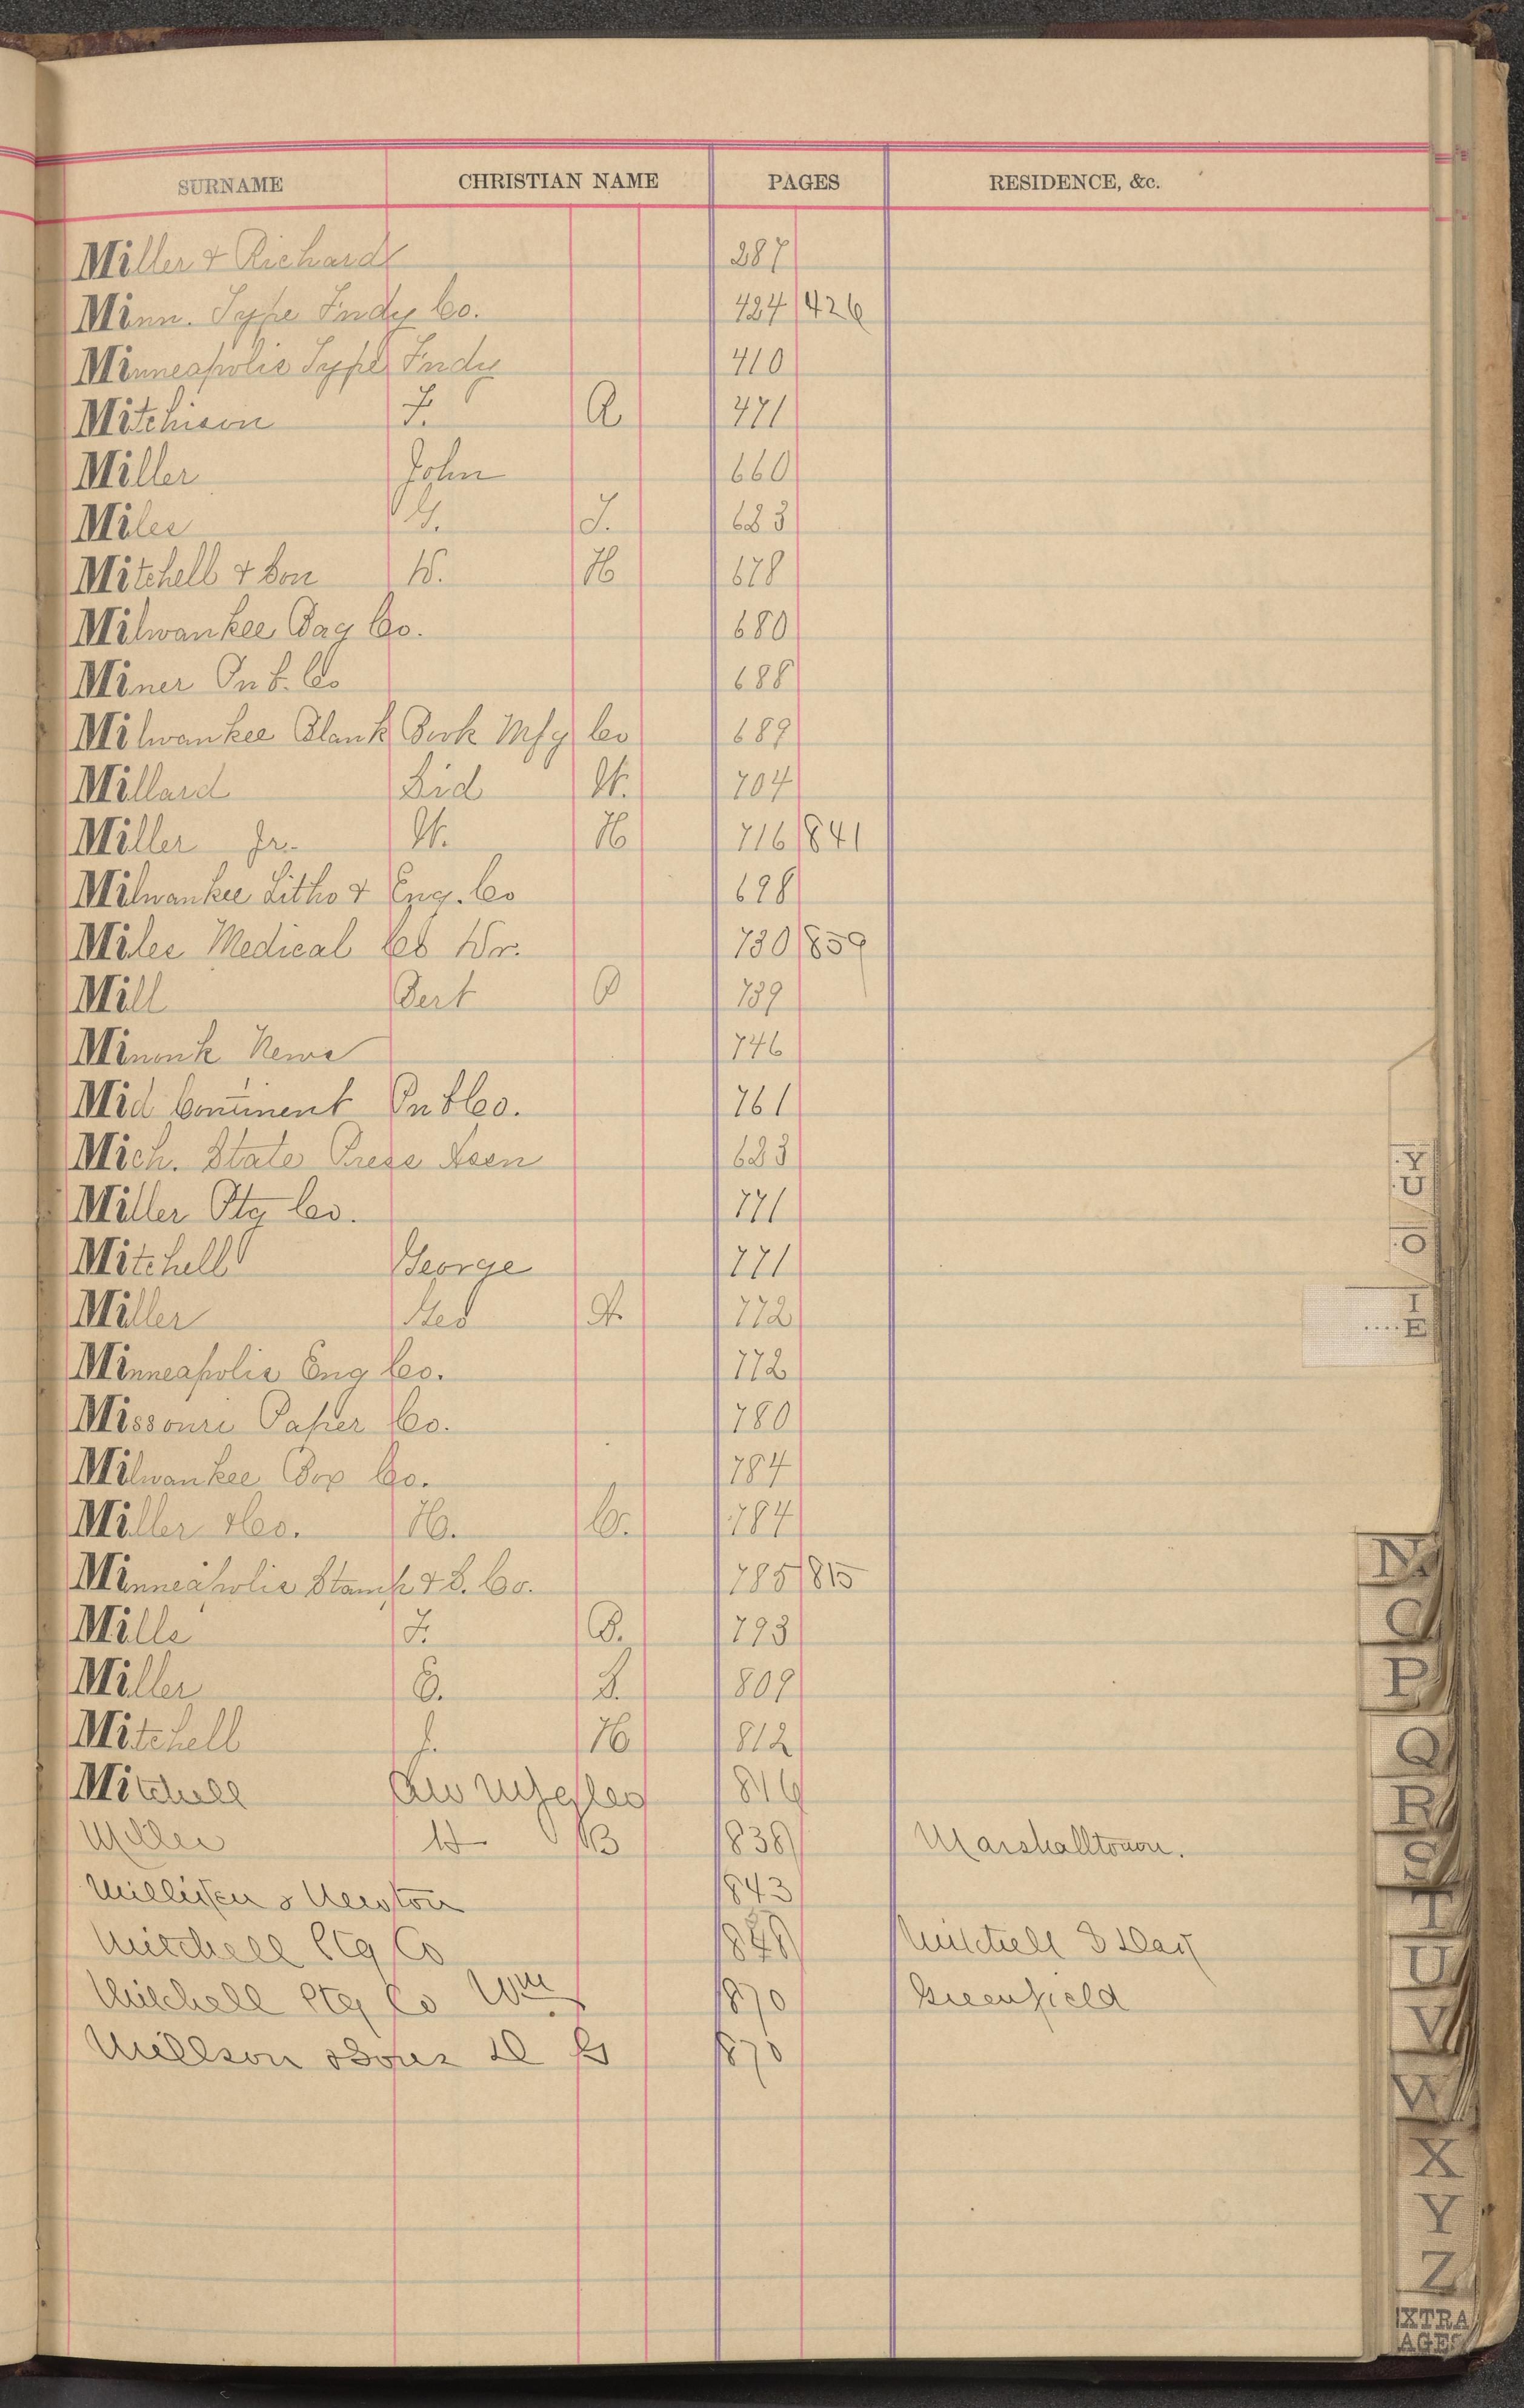 SURNAME CHRISTIAN NAME PAGES RESIDENCE, &c.
Miller & Richard 287
Minn. Type Fndy Co. 424 426
Minneapolis Type Fndy 410
Mitchison F. A 471
Miller John 660
Miles J. 683
Mitchell & Son W. H 678
Milwaukee Bag Co. 680
Miner Pub. Co 688
Milwaukee Blank Book Mfg Co 689
Millard Sid W. 704
Miller Jr. W. H 716 841
Milwaukee Litho & Eng. Co 698
Miles Medical Co Dr. 730 859
Mill Bert P 739
Minonk News 746
Mid Continent Pub Co. 761
Mich. State Press Assn 683
Miller Ptg Co. 771
Mitchell George 771
Miller Geo A. 772
Minneapolis Eng Co. 772
Missouri Paper Co. 780
Milwaukee Box Co. 784
Miller & Co. H. C. 784
Minneapolis Stamp & S. Co. 785 815
Mills F. B. 793
Miller E. S. 809
Mitchell J. H 812
Mitchell Mfg Co 816
Miller H B 838 Marshalltown.
Milliken & Newton 843
Mitchell Ptg Co Mitchell S Dak
Mitchell Ptg Co Wm 870 Greenfield
Millson & Sons D 870
Y
U
O
I
E
N
O
P
Q
R
S
T
U
V
W
X
Y
Z
EXTRA
AGES